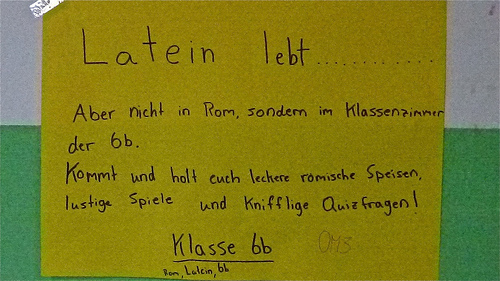 Latein lebt.............
Aber nicht in Rom, sondern im Klassenzimmer
der 6b.
Kommt und holt euch leckere römische Speisen,
lustige Spiele und Knifflige Quizfragen!
Klasse 6b
Rom, Latein, 6b